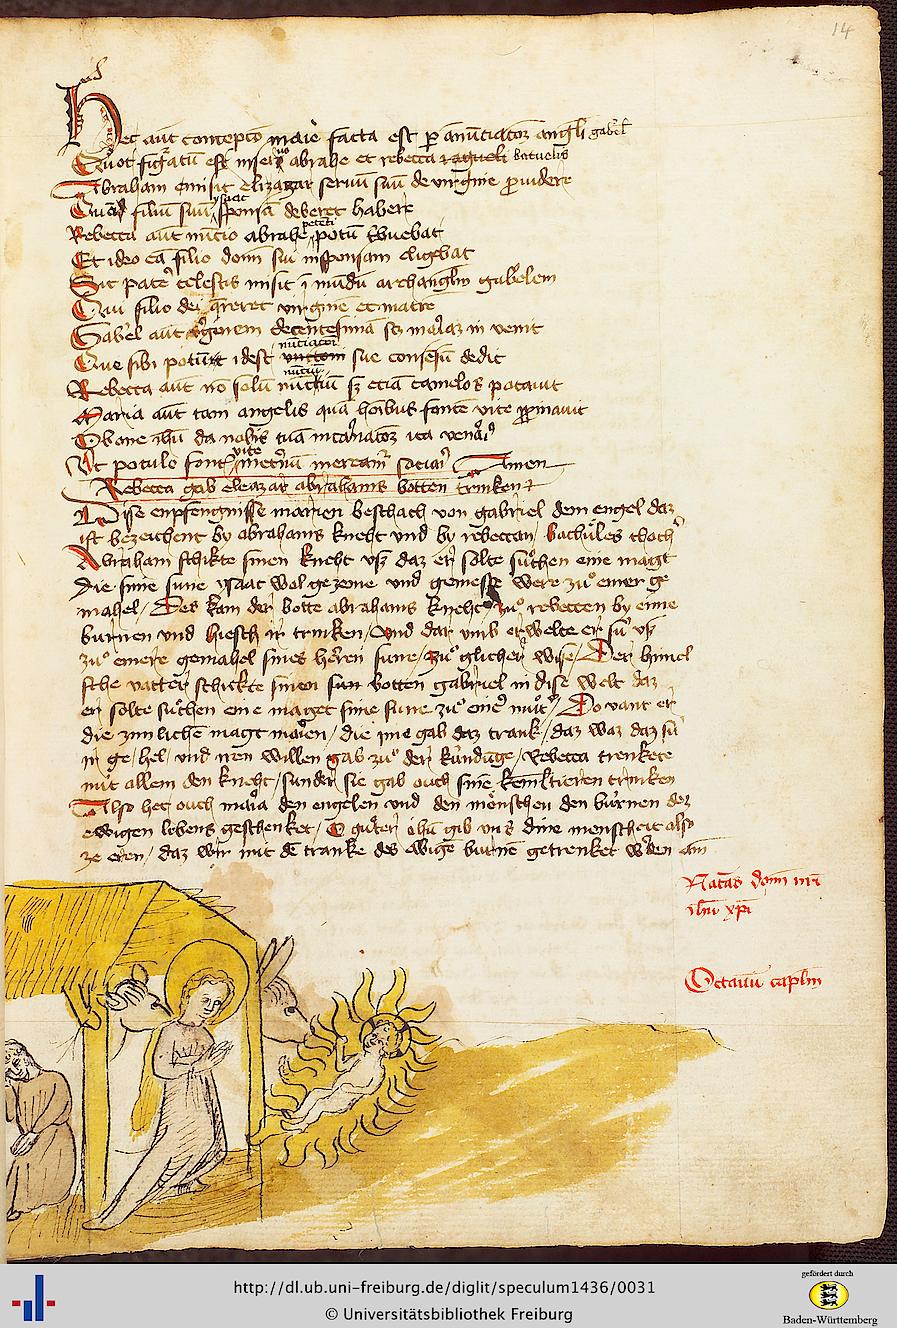 14
Hec aut concepto marie facta est p anuntiatoz angli gabel
Quot figatu est in servo abrahe et rebecca raqueli batuelis
Abraham emisit elizazar servu suu de virgine pvidere
Quā filiu suu ysaac sponsā deberet habere
Rebecca aut nuncio abrahe petēti potu tbuebat
Et ideo eā filio domi sui in sponsam eligebat
Sic pater celestis misit ī mūdū archanglm gabelem
Qui filio dei qreret virginē et matrē
Gabel aut vginem decentesimā sz mariaz in venit
Que sibi potū idest nūciacōi sue consēsū dedit
Rebecca aut nō solū nūciū sz eciā camelos potauit
Maria aut tam angelis quā hoibus fontē vite ppinauit
O bone ihu da nobis tuā incarnatōz ita venari
Ut potulo fontis vite eternū mereamr saciari Amen
Rebecca gab eleazar abrahams botten trinken
Dise enpfengnisse marien beschach von gabriel dem engel daz
ist bezeichent by abrahams kneht vnd by rebeccan bachules thocht
Abraham schikte sinen kneht vsz daz er solte suchen eine magt
die sime sune ysaac wol gezeme vnd gemesse were zuo einer ge
mahel / Des kam der botte abrahams kneht zuo rebeccen by eime
burnen vnd hiesch ir trinken / Vnd dar vmb erwelte er su vsz
zuo einere gemahel sines herren sune / Zuo glicher wise / Der himel
sche vatter schickte sinen sun botten gabriel in dise welt daz
er solte suchen eine maget sime sune zuo einer muter / Do vant er
die zimlichen magt marien / die ime gab daz trank / daz waz daz su
ir ge / hel / vnd iren willen gab zuo der kundunge / Rebecca trenkete
nut allem den kneht / sunder sie gab ouch sine kemltieren trinken
Also het ouch maria den engelen vnd den mönschen den burnen dez
ewigen lebens geschenket / O guter ihu gib vns dine menscheit also
ze eren / daz wir mit de tranke des ewige burne getrenket wden am
Natitas domi nri
ihu xpi
Octauū caplm
http://dl.ub.uni-freiburg.de/diglit/speculum1436/0031
© Universitätsbibliothek Freiburg
gefördert durch
Baden-Württemberg